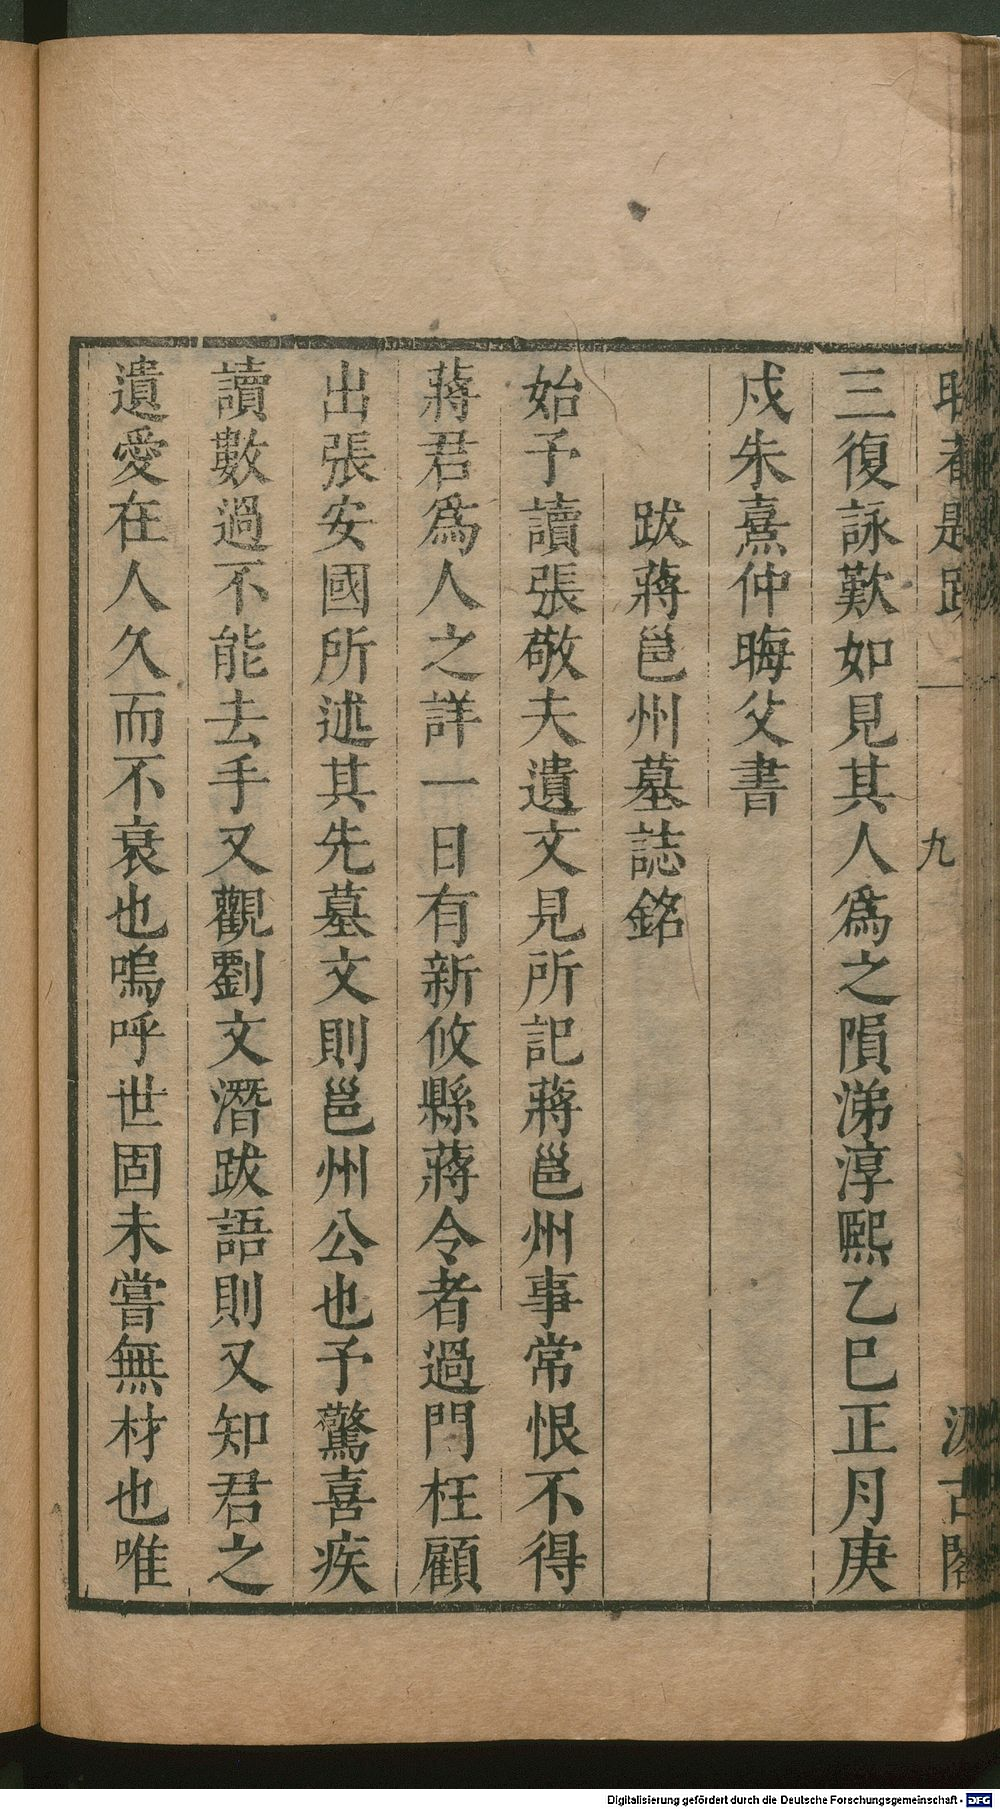 三復詠歎如見其人爲之隕涕淳熙乙巳正月庚
戍朱熹仲晦父書
跋蔣邕州墓誌銘
始予讀張敬夫遺文見所記蔣邕州事常恨不得
蔣君爲人之詳一日有新攸縣蔣令者過門枉顧
出張安國所述其先墓文則邕州公也予驚喜疾
讀數過不能去手又觀劉文潛跋語則又知君之
遺愛在人久而不衰也嗚呼世固未嘗無材也唯
九
汲古閣
Digitalisierung gefördert durch die Deutsche Forschungsgemeinschaft - DFG